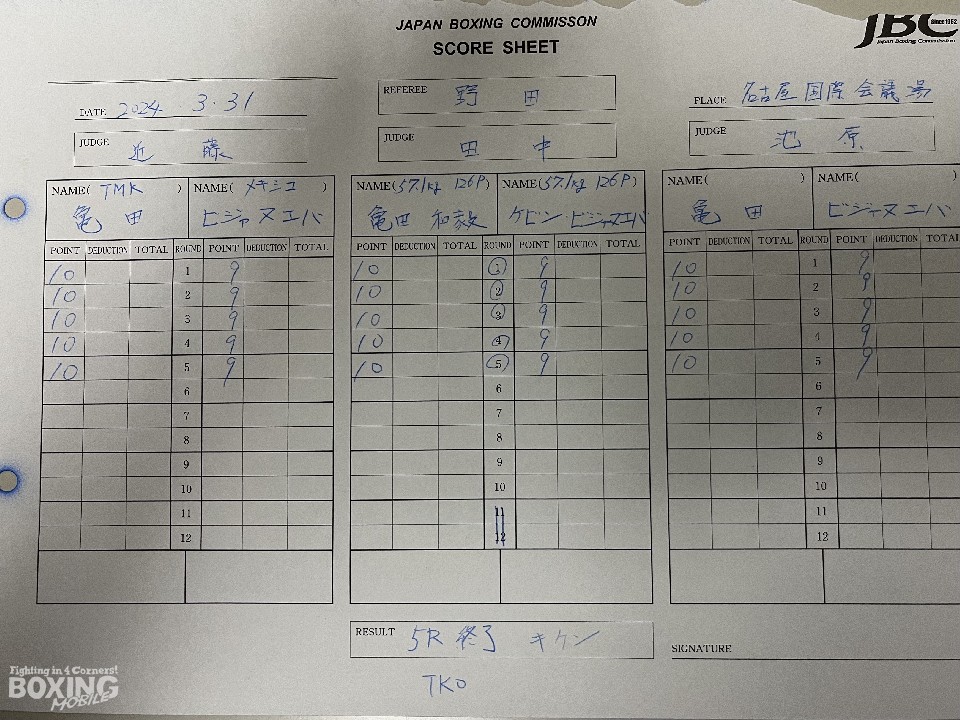 JAPAN BOXING COMMISSON
SCORE SHEET
JBC Since 1952
Japan Boxing Commission
DATE 2024 3.31
REFEREE 野田
PLACE 名古屋国際会議場
JUDGE 近藤
JUDGE 田中
JUDGE 池原
NAME( TMK ) NAME( メキシコ )
亀田 ビジャヌエバ
POINT DEDUCTION TOTAL ROUND POINT DEDUCTION TOTAL
10 1 9
10 2 9
10 3 9
10 4 9
10 5 9
6
7
8
9
10
11
12
NAME(57.1kg 126P) NAME(57.1kg 126P)
亀田 和毅 ケビン・ビジャヌエバ
POINT DEDUCTION TOTAL ROUND POINT DEDUCTION TOTAL
10 1 9
10 2 9
10 3 9
10 4 9
10 5 9
6
7
8
9
10
11
12
NAME( ) NAME( )
亀田 ビジャヌエバ
POINT DEDUCTION TOTAL ROUND POINT DEDUCTION TOTAL
10 1 9
10 2 9
10 3 9
10 4 9
10 5 9
6
7
8
9
10
11
12
RESULT 5R 終了 キケン
TKO
SIGNATURE
Fighting in 4 Corners!
BOXING
MOBILE